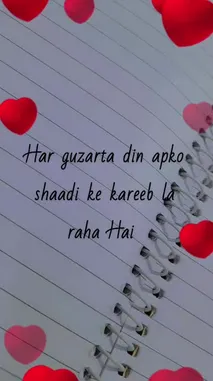 Har guzarta din apko
shaadi ke kareeb la
raha Hai